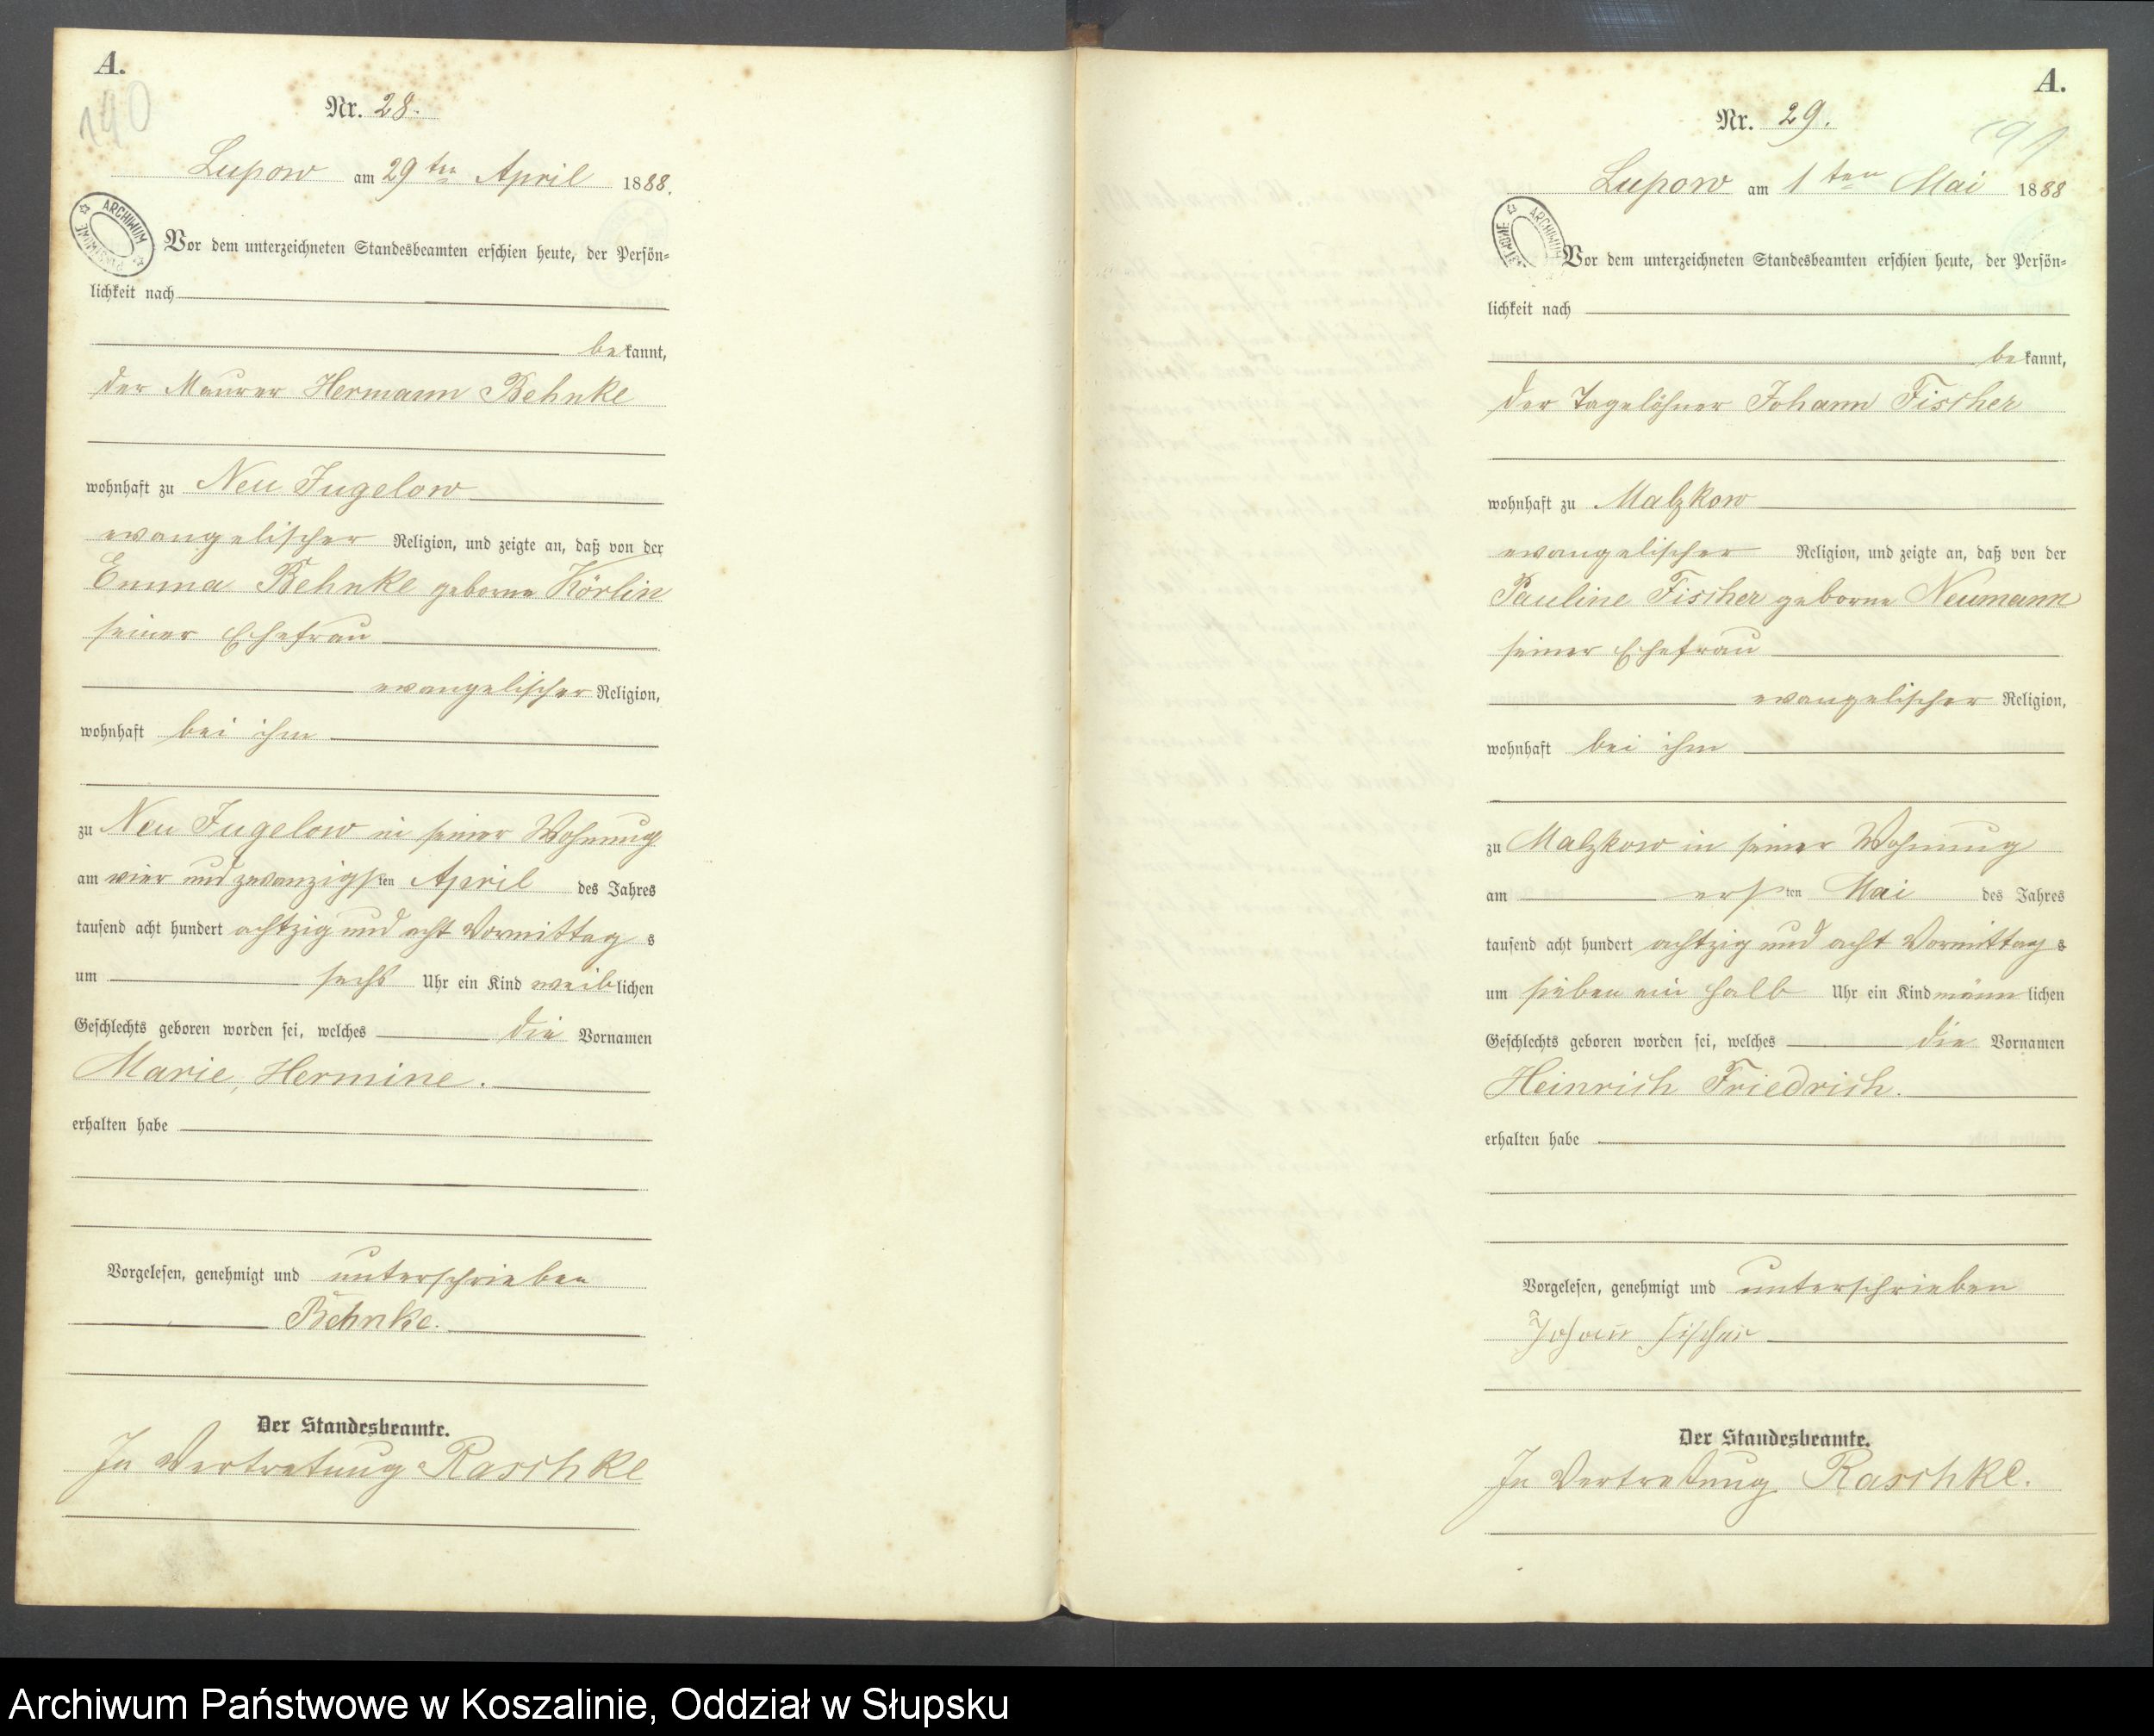 A.
140
Nr. 28.
Lupow am 29ten April 1888.
ARCHIWUM PAŃSTWOWE
Vor dem unterzeichneten Standesbeamten erschien heute, der Persön=
lichkeit nach
bekannt,
der Maurer Hermann Behnke
wohnhaft zu Neu Jugelow
evangelischer Religion, und zeigte an, daß von der
Emma Behnke geborne Körlin
seiner Ehefrau
evangelischer Religion,
wohnhaft bei ihm
zu Neu Jugelow in seiner Wohnung
am vier und zwanzigsten April des Jahres
tausend acht hundert achtzig und acht Vormittags
um sechs Uhr ein Kind weiblichen
Geschlechts geboren worden sei, welches die Vornamen
Marie, Hermine.
erhalten habe
Vorgelesen, genehmigt und unterschrieben
Behnke.
Der Standesbeamte.
In Vertretung Raschke
A.
Nr. 29.
Lupow am 1ten Mai 1888
ARCHIWUM
Vor dem unterzeichneten Standesbeamten erschien heute, der Persön=
lichkeit nach
bekannt,
der Tagelöhner Johann Fischer
wohnhaft zu Malzkow
evangelischer Religion, und zeigte an, daß von der
Pauline Fischer geborne Neumann
seiner Ehefrau
evangelischer Religion,
wohnhaft bei ihm
zu Malzkow in seiner Wohnung
am ersten Mai des Jahres
tausend acht hundert achtzig und acht Vormittags
um sieben ein halb Uhr ein Kind männlichen
Geschlechts geboren worden sei, welches die Vornamen
Heinrich Friedrich.
erhalten habe
Vorgelesen, genehmigt und unterschrieben
Johann Fischer
Der Standesbeamte.
In Vertretung Raschke.
Archiwum Państwowe w Koszalinie, Oddział w Słupsku